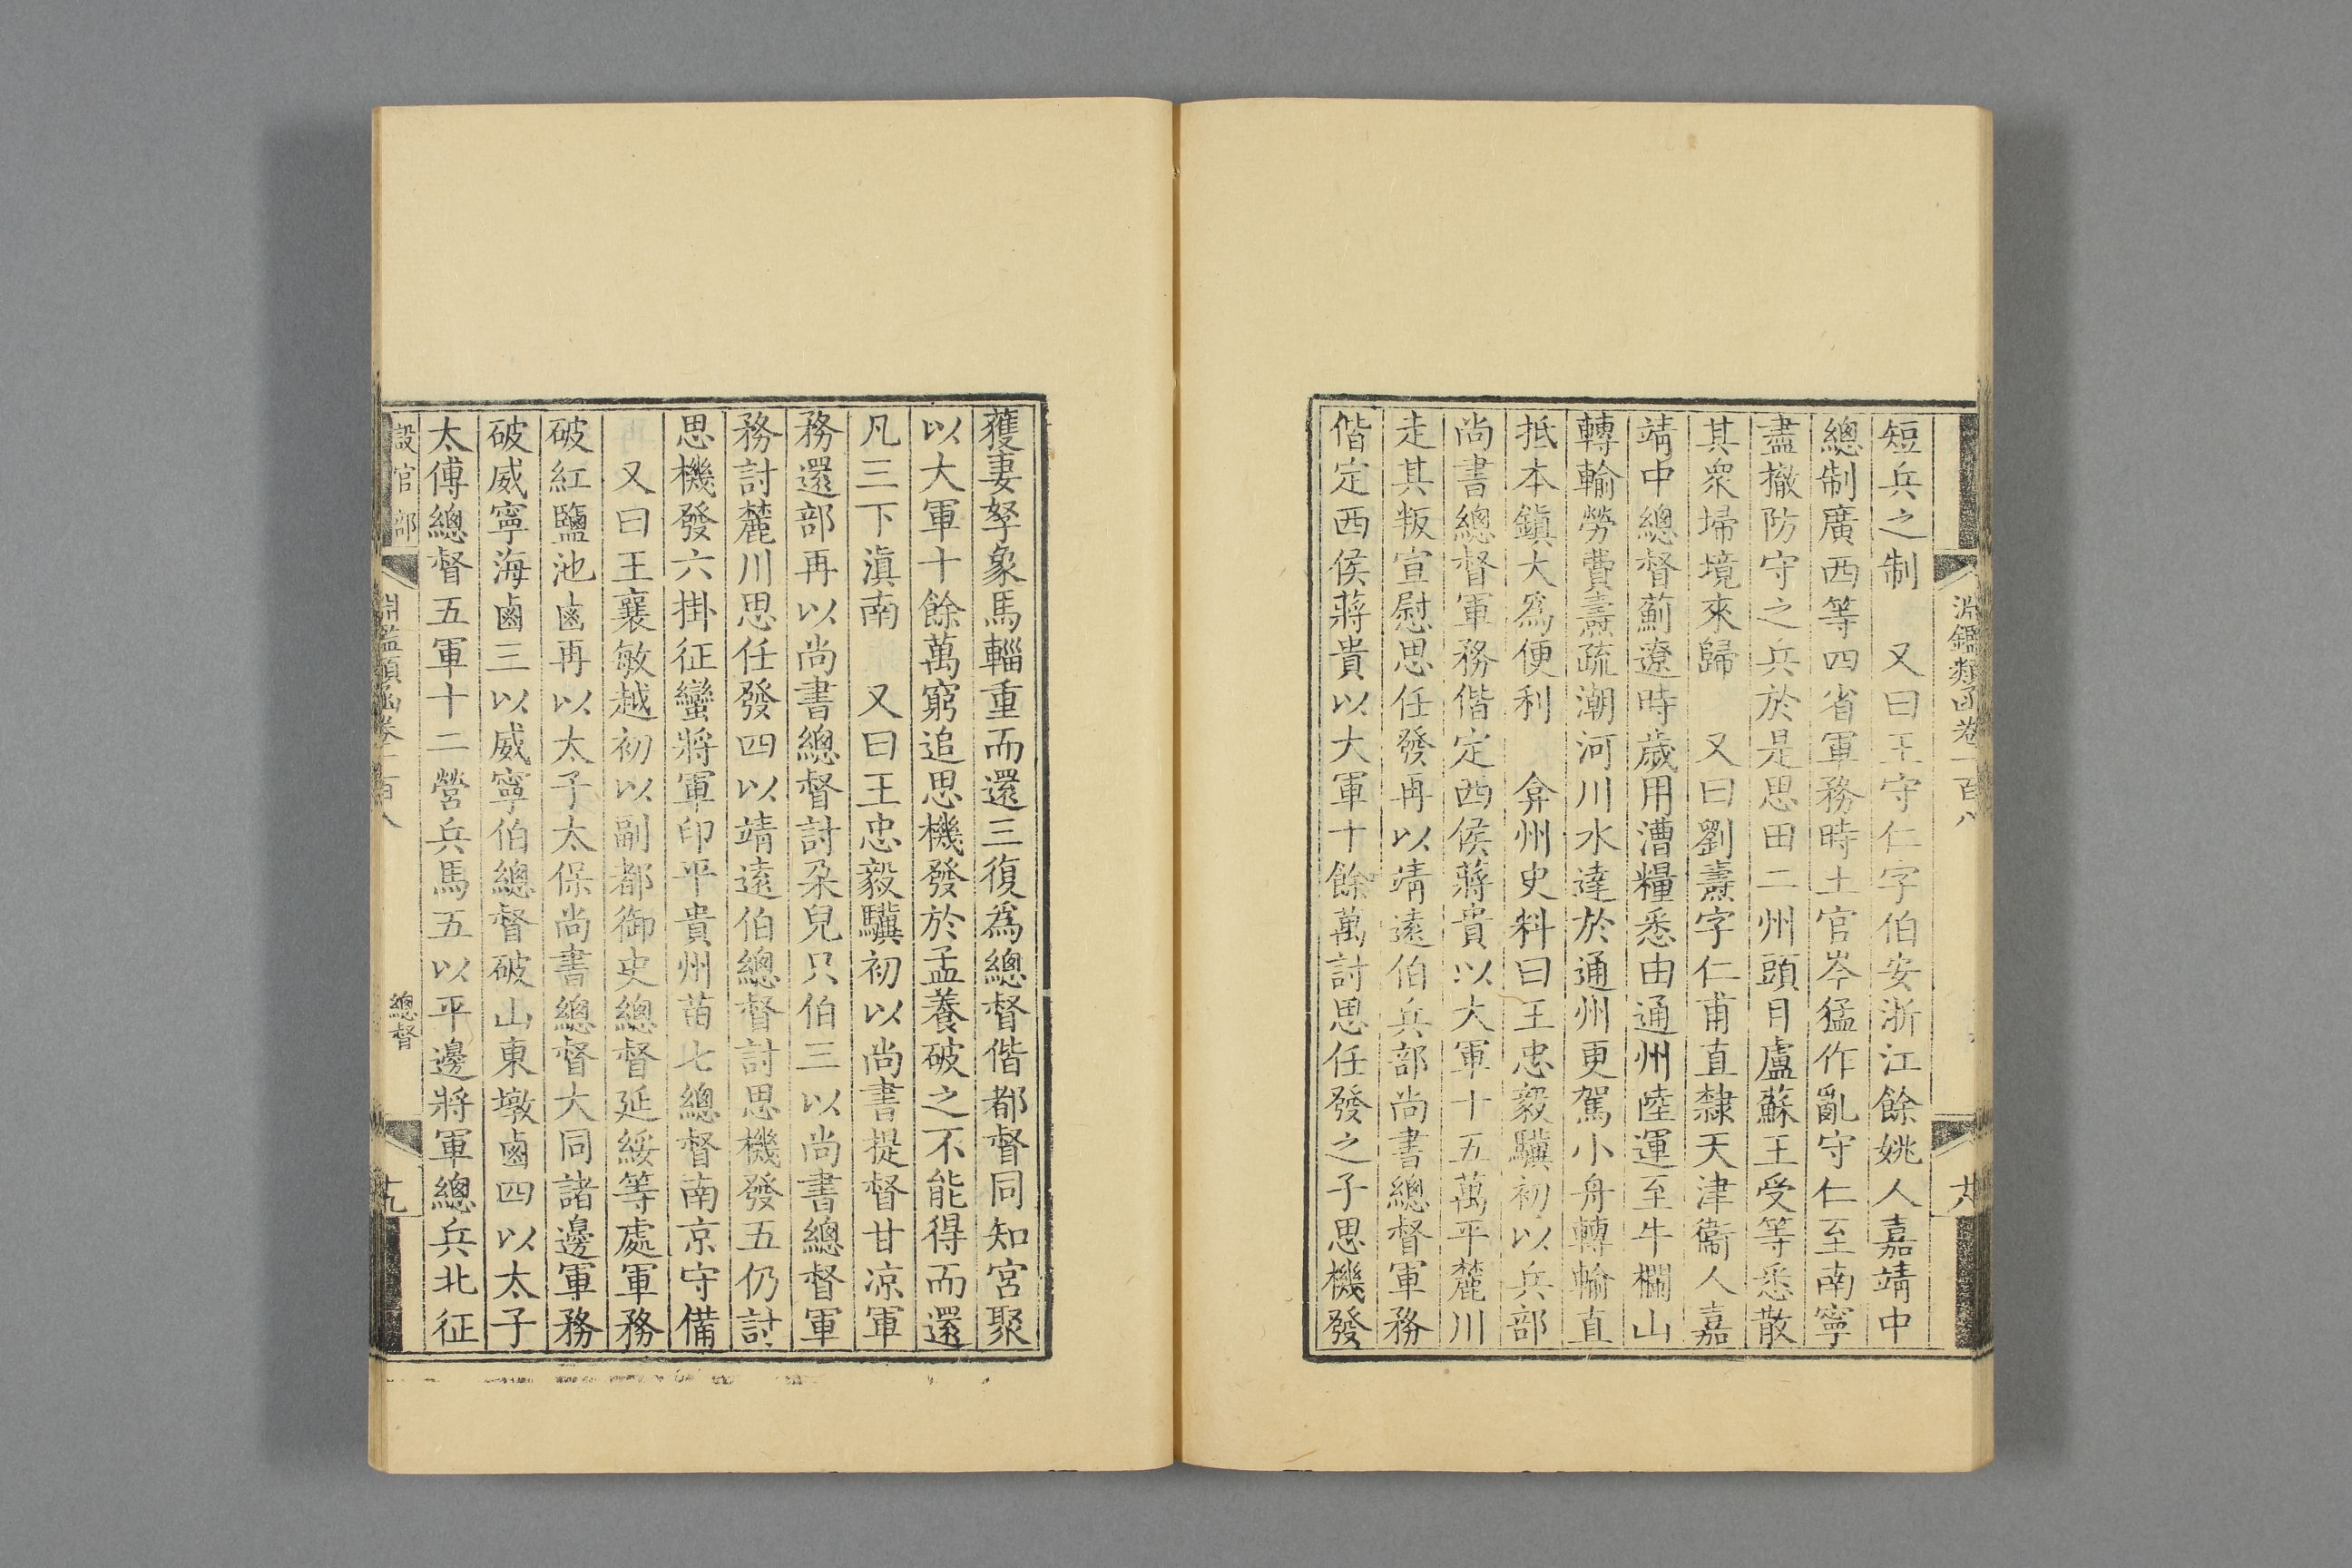 淵鑑類函卷一百八
短兵之制　又曰王守仁字伯安浙江餘姚人嘉靖中
總制廣西等四省軍務時土官岑猛作亂守仁至南寧
盡撤防守之兵於是思田二州頭目盧蘇王受等悉散
其衆埽境來歸　又曰劉燾字仁甫直隸天津衞人嘉
靖中總督薊遼時歲用漕糧悉由通州陸運至牛欄山
轉輸勞費燾疏潮河川水達於通州更駕小舟轉輸直
抵本鎭大爲便利　弇州史料曰王忠毅驥初以兵部
尚書總督軍務偕定西侯蔣貴以大軍十五萬平麓川
走其叛宣慰思任發再以靖遠伯兵部尚書總督軍務
偕定西侯蔣貴以大軍十餘萬討思任發之子思機發
獲妻孥象馬輜重而還三復爲總督偕都督同知宮聚
以大軍十餘萬窮追思機發於孟養破之不能得而還
凡三下滇南　又曰王忠毅驥初以尚書提督甘凉軍
務還部再以尚書總督討朶兒只伯三以尚書總督軍
務討麓川思任發四以靖遠伯總督討思機發五仍討
思機發六掛征蠻將軍印平貴州苗七總督南京守備
又曰王襄敏越初以副都御史總督延綏等處軍務
破紅鹽池鹵再以太子太保尚書總督大同諸邊軍務
破威寧海鹵三以威寧伯總督破山東墩鹵四以太子
太傅總督五軍十二營兵馬五以平邊將軍總兵北征
設官部 淵鑑類函卷一百八 總督 十九